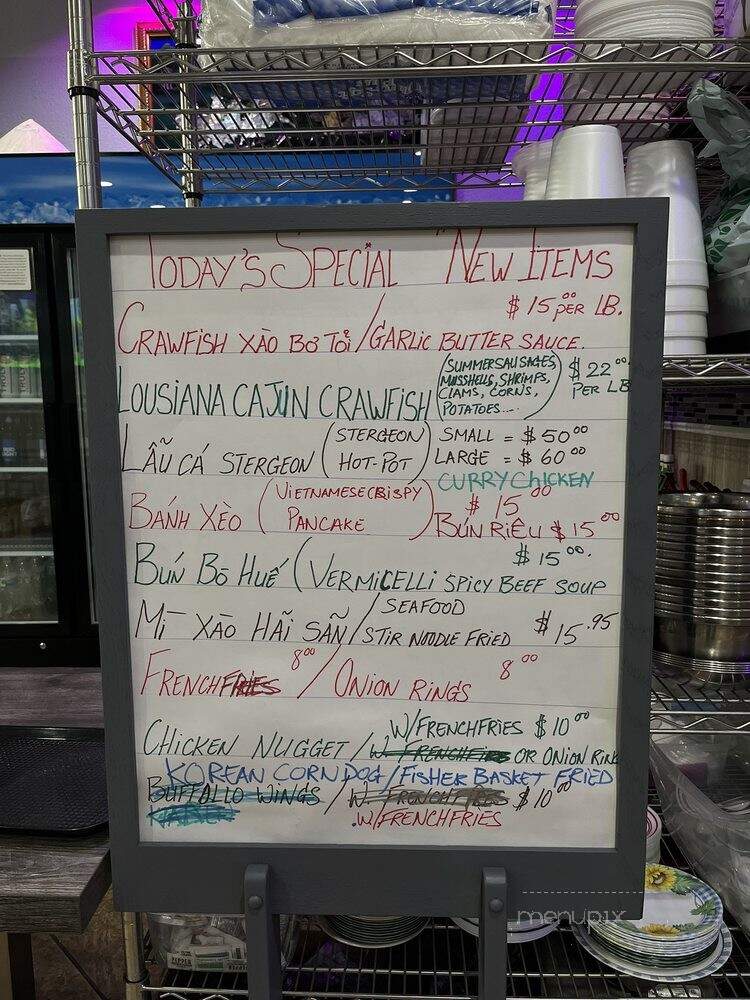 TODAY'S SPECIAL "NEW ITEMS
$15.00 PER LB.
CRAWFISH XÀO BƠ TỎI / GARLIC BUTTER SAUCE.
LOUSIANA CAJUN CRAWFISH (SUMMERSAUSAGES, MUSSHELLS, SHRIMPS, CLAMS, CORNS, POTATOES....) $22.00 PER LB
LẪU CÁ STERGEON (STERGEON HOT-POT) SMALL = $50.00
LARGE = $60.00
CURRY CHICKEN
$15.00
BÁNH XÈO (VIETNAMESE CRISPY PANCAKE) BÚN RIÊU $15.00
$15.00.
BÚN BÒ HUẾ (VERMICELLI SPICY BEEF SOUP
MÌ XÀO HÃI SÃN / SEAFOOD STIR NOODLE FRIED $15.95
FRENCHFRIES 8.00 / ONION RINGS 8.00
W/FRENCHFRIES $10.00
CHICKEN NUGGET / W. FRENCHFRIES OR ONION RING
KOREAN CORN DOG / FISHER BASKET FRIED
BUFFALLO WINGS / W. FRENCHFRIES $10.00
.W/FRENCHFRIES
menupix